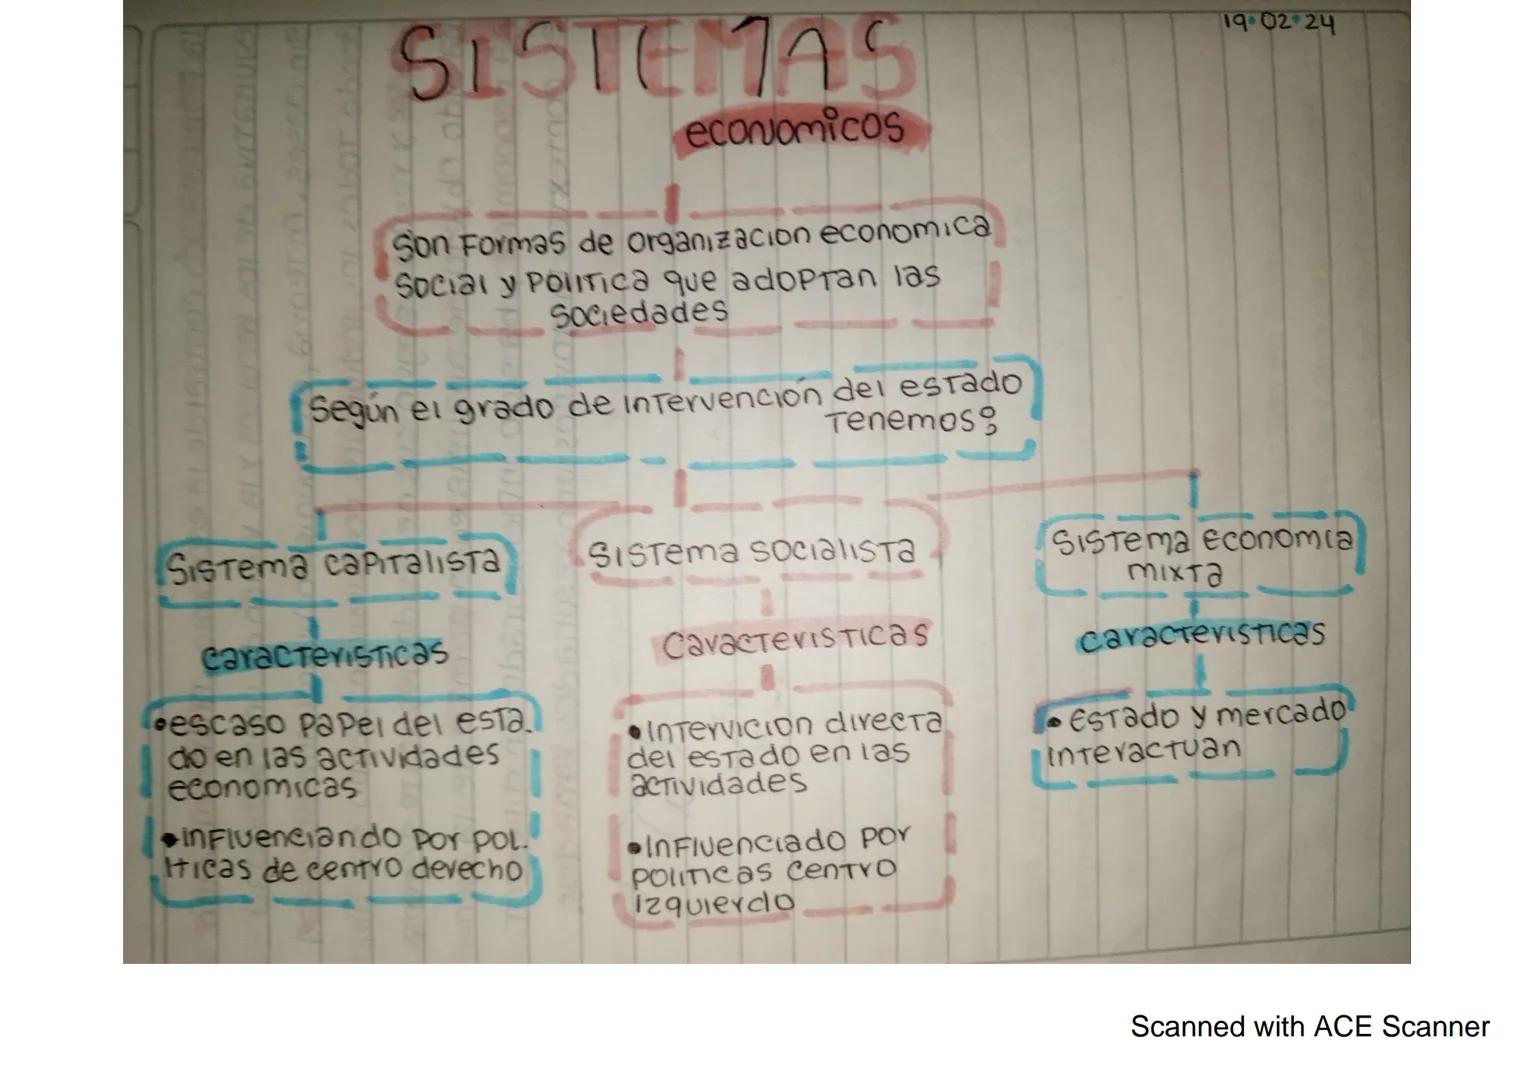 19.02.24
SISTEMAS
economicos
Son Formas de organizacion economica
Social y Politica que adoptan las
Sociedades
Según el grado de intervención del estado
Tenemos:
Sistema capitalista
Sistema socialista
Sistema economia
mixta
caracteristicas
Caracteristicas
caracteristicas
•escaso papel del esta.
do en las actividades
economicas
•influenciando por pol.
iticas de centro derecho
•Intervicion directa
del estado en las
actividades
•Influenciado por
politicas centro
izquierdo
•Estado y mercado
interactuan
Scanned with ACE Scanner